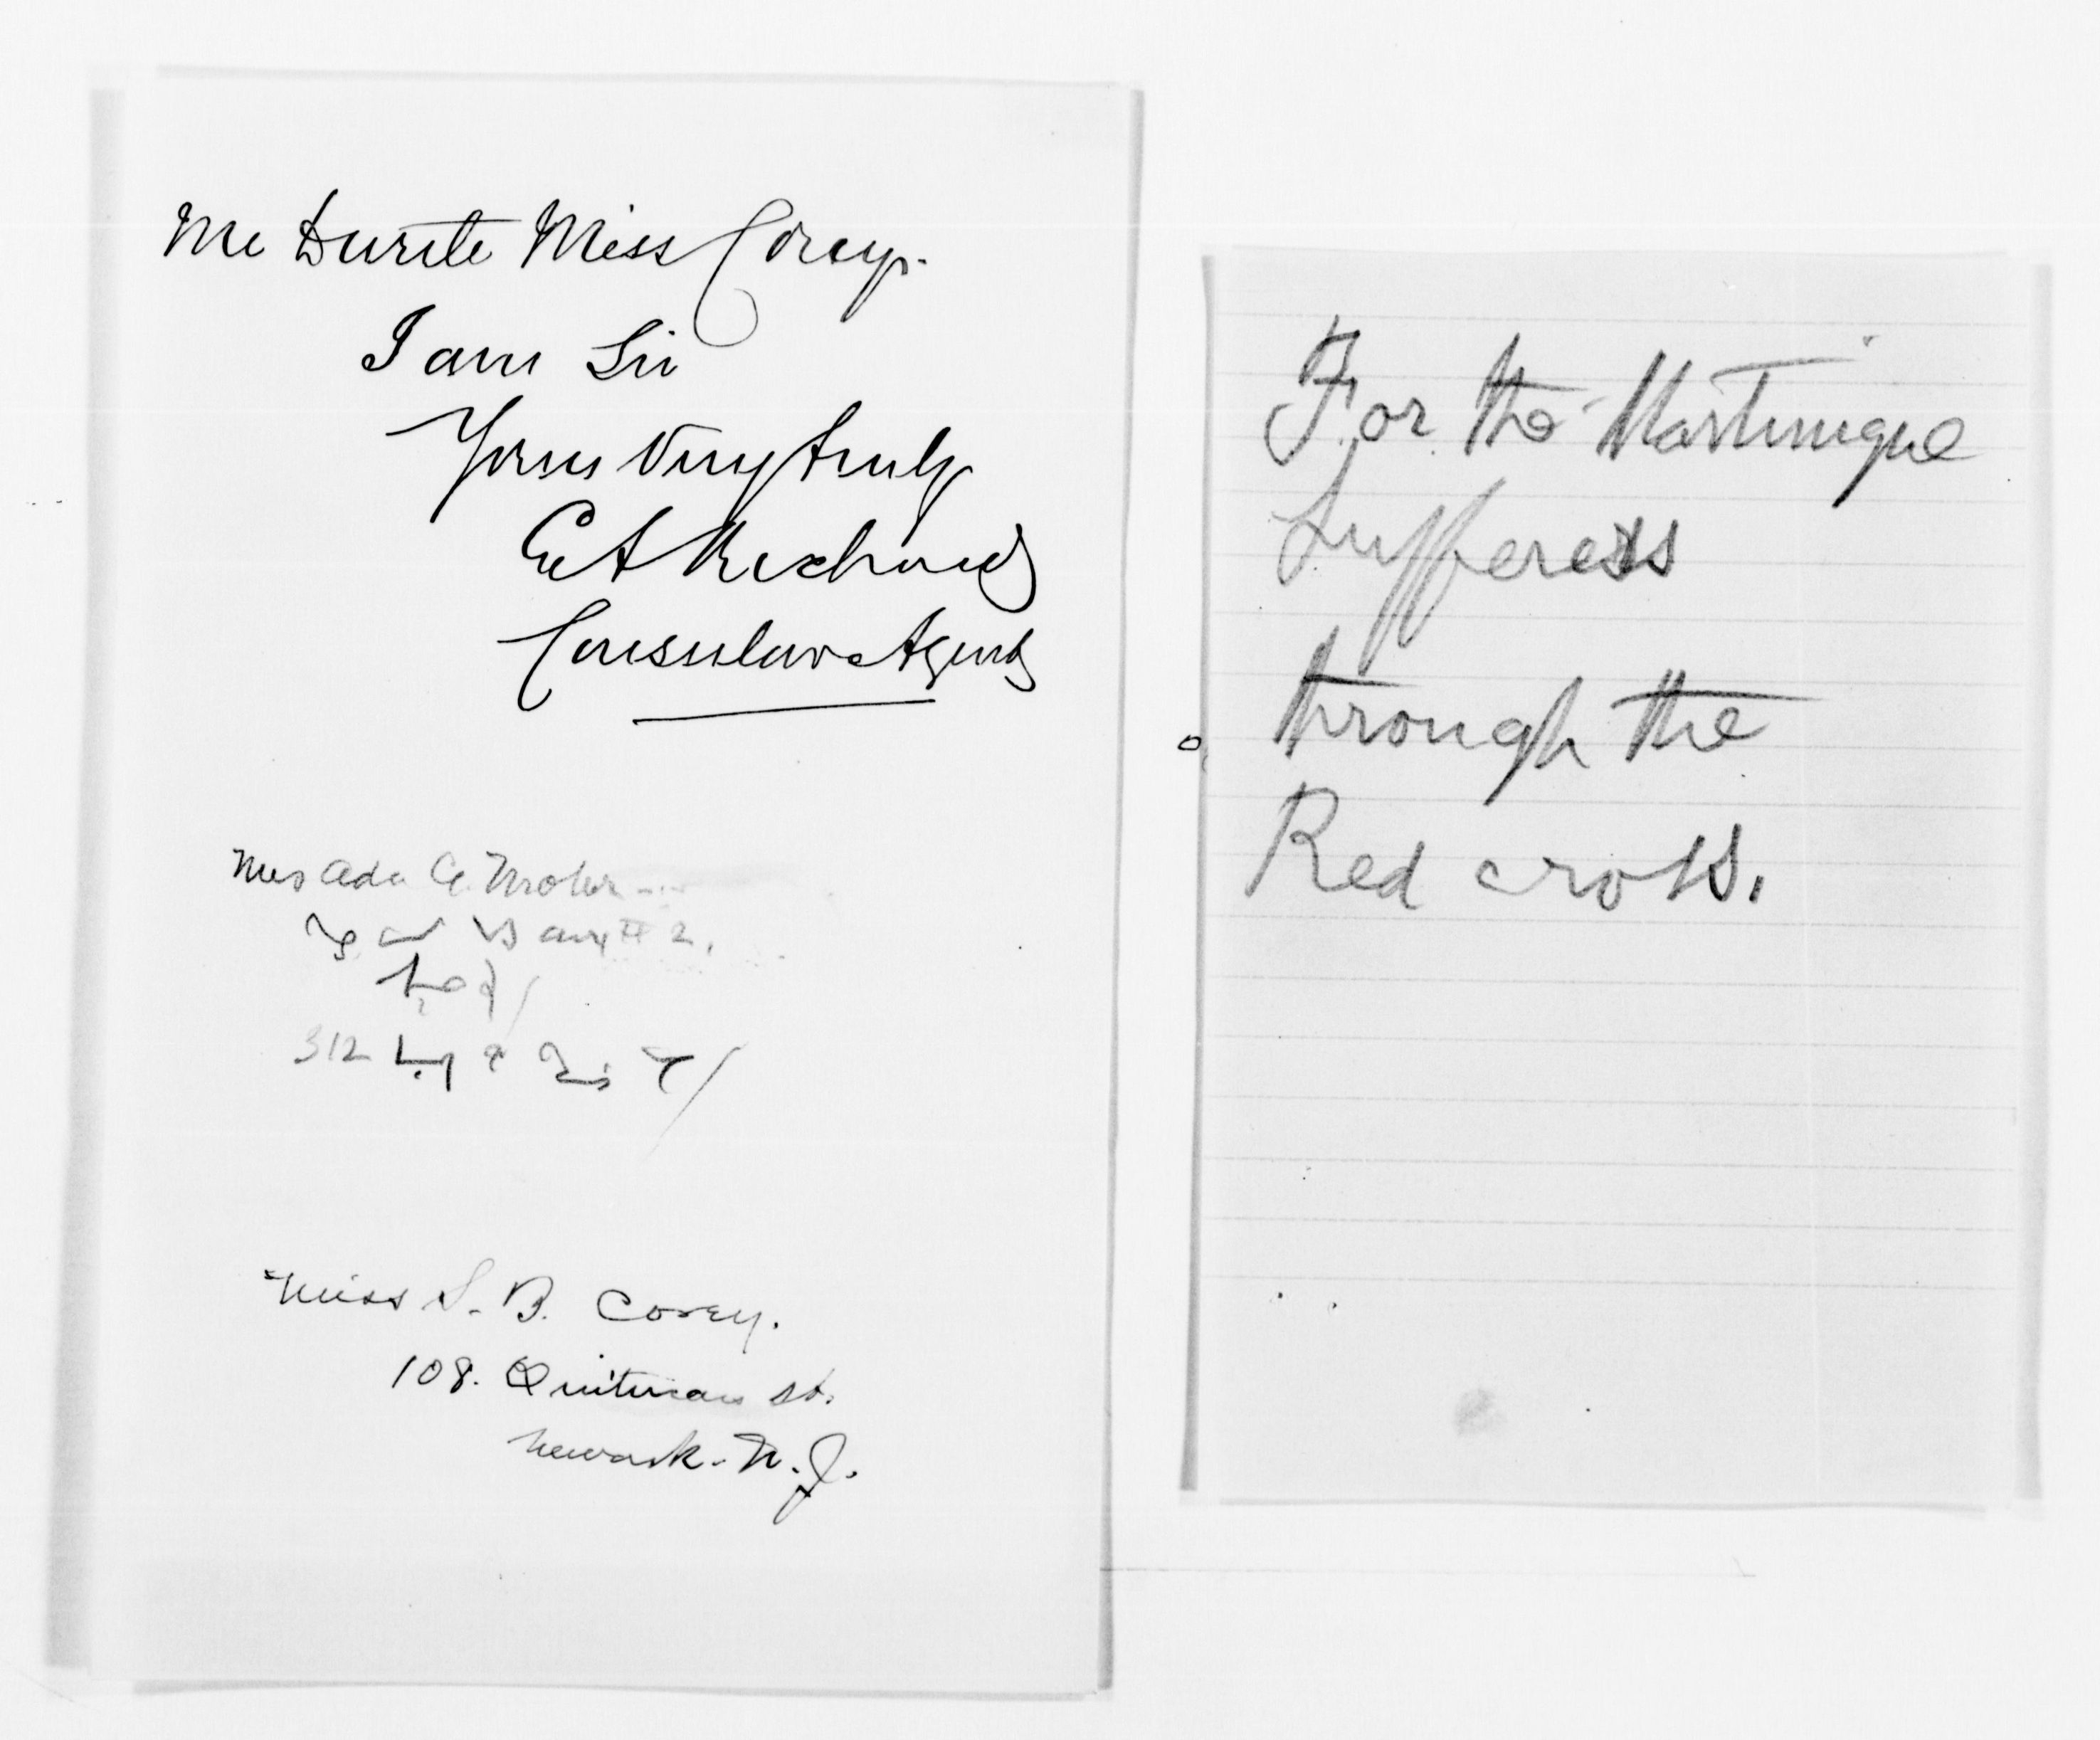 Miss Corey.
I am Sir
Yours Very truly
E A Richards
Consular Agent
Mrs Ada C. Mohr
#2.
312
Miss S. B. Corey.
108. Quitman St.
Newark. N. J.
For the Martinique
Sufferers
through the
Red cross.